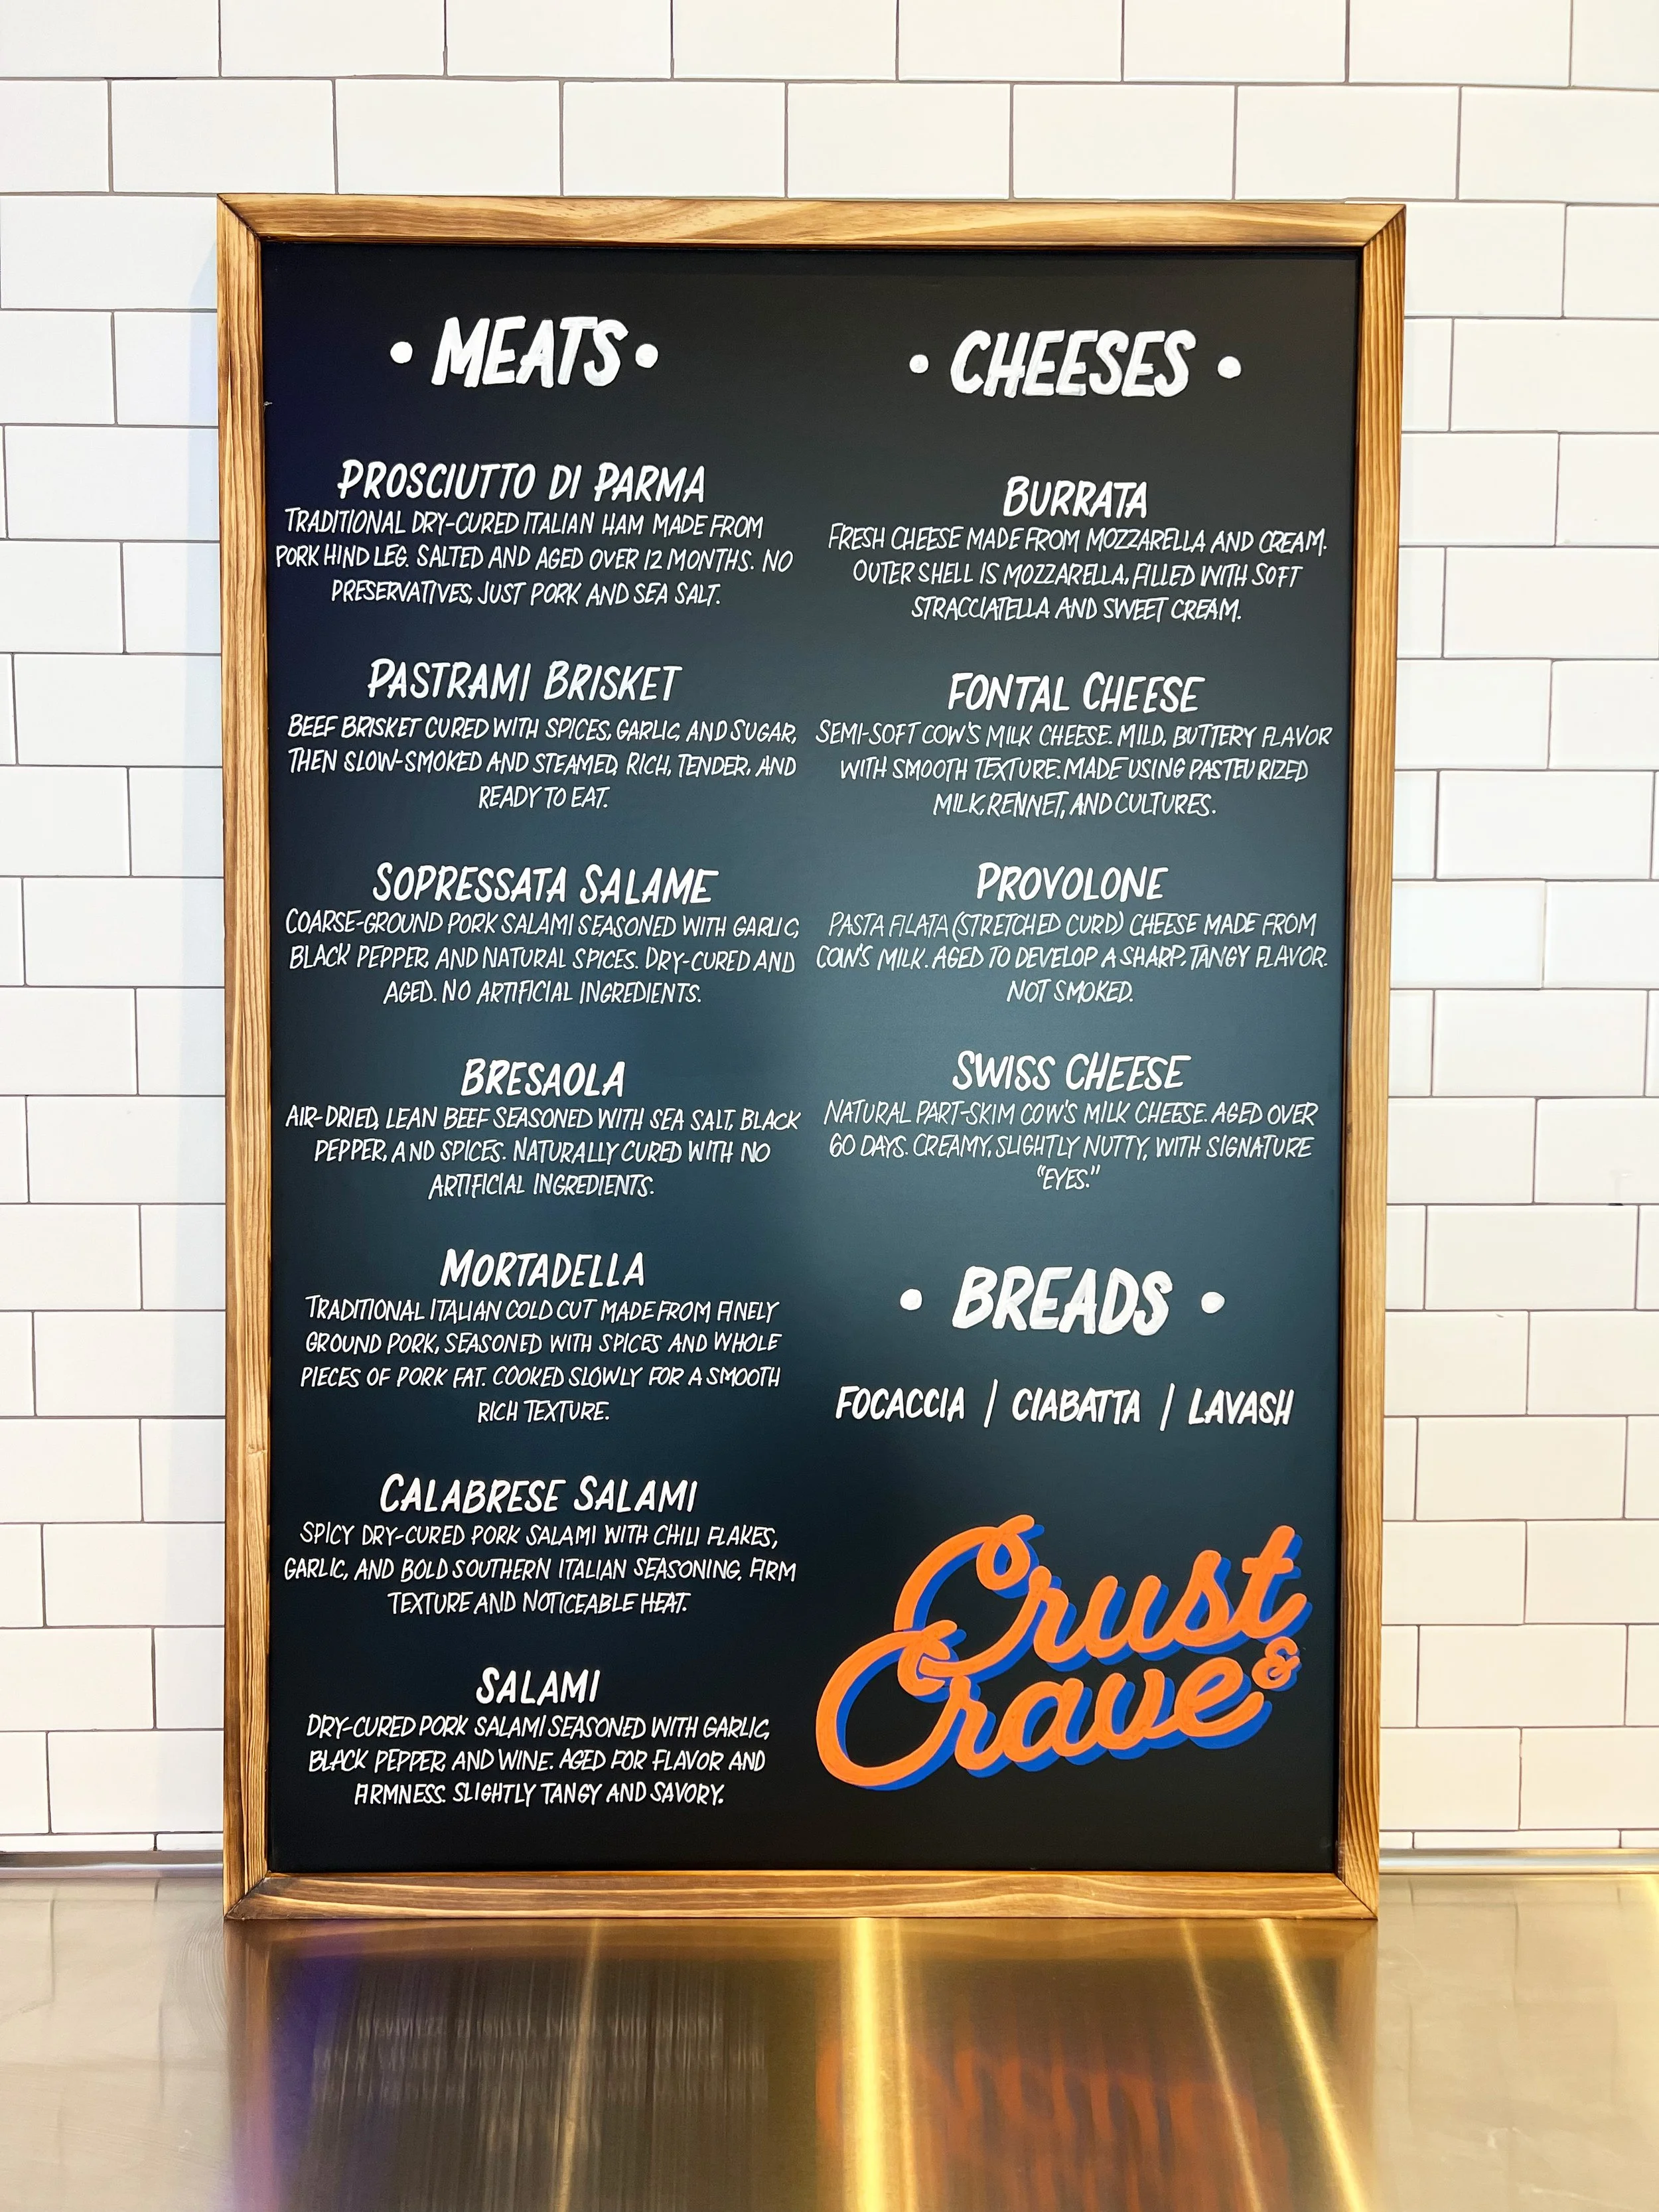 • MEATS •
PROSCIUTTO DI PARMA
TRADITIONAL DRY-CURED ITALIAN HAM MADE FROM
PORK HIND LEG. SALTED AND AGED OVER 12 MONTHS. NO
PRESERVATIVES, JUST PORK AND SEA SALT.
PASTRAMI BRISKET
BEEF BRISKET CURED WITH SPICES, GARLIC, AND SUGAR,
THEN SLOW-SMOKED AND STEAMED. RICH, TENDER, AND
READY TO EAT.
SOPRESSATA SALAME
COARSE-GROUND PORK SALAMI SEASONED WITH GARLIC,
BLACK PEPPER, AND NATURAL SPICES. DRY-CURED AND
AGED. NO ARTIFICIAL INGREDIENTS.
BRESAOLA
AIR-DRIED, LEAN BEEF SEASONED WITH SEA SALT, BLACK
PEPPER, AND SPICES. NATURALLY CURED WITH NO
ARTIFICIAL INGREDIENTS.
MORTADELLA
TRADITIONAL ITALIAN COLD CUT MADE FROM FINELY
GROUND PORK, SEASONED WITH SPICES AND WHOLE
PIECES OF PORK FAT. COOKED SLOWLY FOR A SMOOTH
RICH TEXTURE.
CALABRESE SALAMI
SPICY DRY-CURED PORK SALAMI WITH CHILI FLAKES,
GARLIC, AND BOLD SOUTHERN ITALIAN SEASONING. FIRM
TEXTURE AND NOTICEABLE HEAT.
SALAMI
DRY-CURED PORK SALAMI SEASONED WITH GARLIC,
BLACK PEPPER, AND WINE. AGED FOR FLAVOR AND
FIRMNESS. SLIGHTLY TANGY AND SAVORY.
• CHEESES •
BURRATA
FRESH CHEESE MADE FROM MOZZARELLA AND CREAM.
OUTER SHELL IS MOZZARELLA, FILLED WITH SOFT
STRACCIATELLA AND SWEET CREAM.
FONTAL CHEESE
SEMI-SOFT COW'S MILK CHEESE. MILD, BUTTERY FLAVOR
WITH SMOOTH TEXTURE. MADE USING PASTEURIZED
MILK, RENNET, AND CULTURES.
PROVOLONE
PASTA FILATA (STRETCHED CURD) CHEESE MADE FROM
COW'S MILK. AGED TO DEVELOP A SHARP, TANGY FLAVOR.
NOT SMOKED.
SWISS CHEESE
NATURAL PART-SKIM COW'S MILK CHEESE. AGED OVER
60 DAYS. CREAMY, SLIGHTLY NUTTY, WITH SIGNATURE
"EYES."
• BREADS •
FOCACCIA / CIABATTA / LAVASH
Crust
& Crave